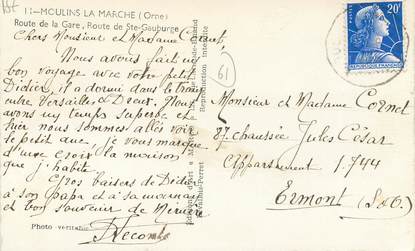 11-MOULINS LA MARCHE (Orne)
Route de la Gare, Route de Ste-Gauburge
Chers Monsieur et Madame Cornet,
Nous avons fait un
bon voyage avec votre petit
Didier, il a dormi dans le train
entre Versailles à Dreux. Nous
avons un temps superbe et
hier nous sommes allés voir
le petit duc, je vous marque
d'une croix la maison
que j'habite
Gros baisers de Didier
à son papa et à sa maman
et bon souvenir de Mémère
Lecomte
Photo véritable
Reproduction interdite
Levallois-Perret
61
20F
REPUBLIQUE FRANÇAISE
Monsieur et Madame Cornet
87 chaussée Jules César
Appartement 1.744
Ermont (S&O)